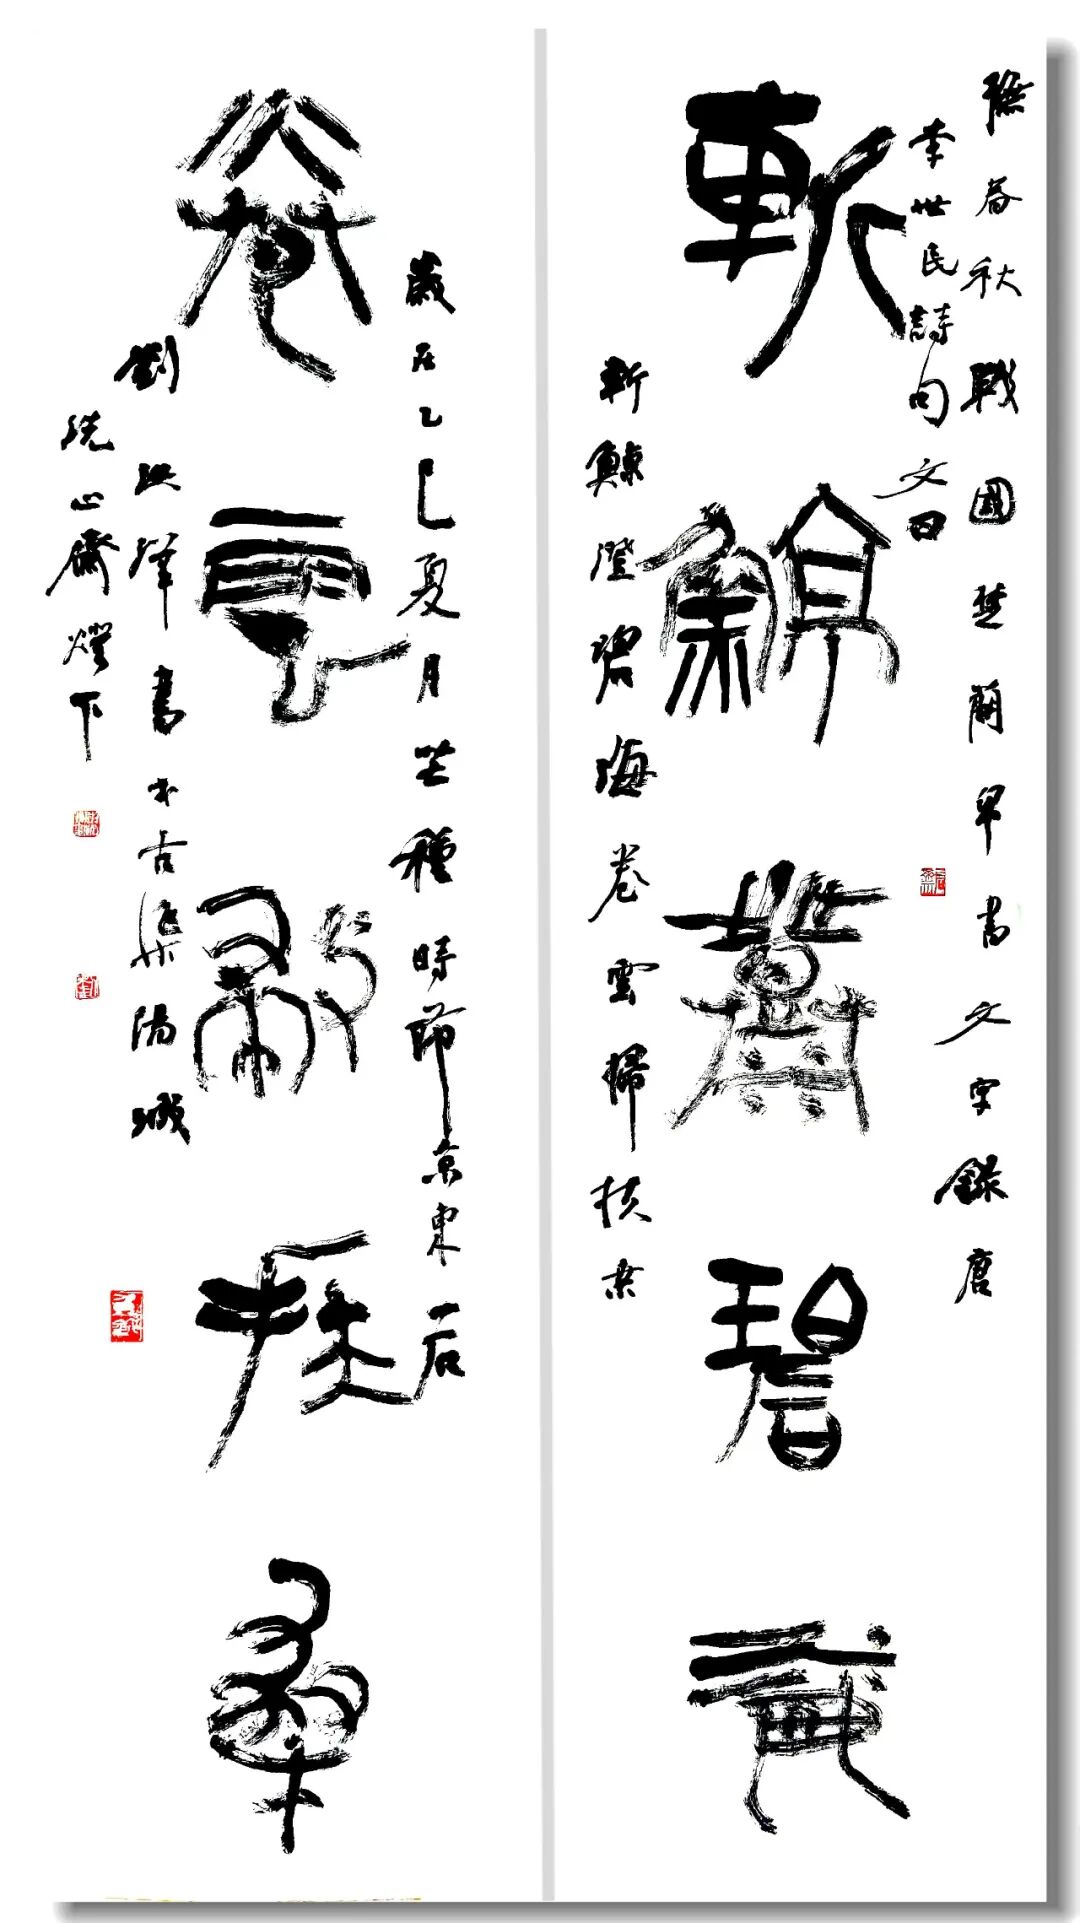 撫春秋戰國楚簡帛書文字錄唐
李世民詩句文曰
斬鯨澄碧海
斬鯨澄碧海卷雲掃扶桒
歲在乙巳夏月芒種時節京東一石
卷雲掃扶桒
劉洪澤書於古漁陽城
洗心齋燈下